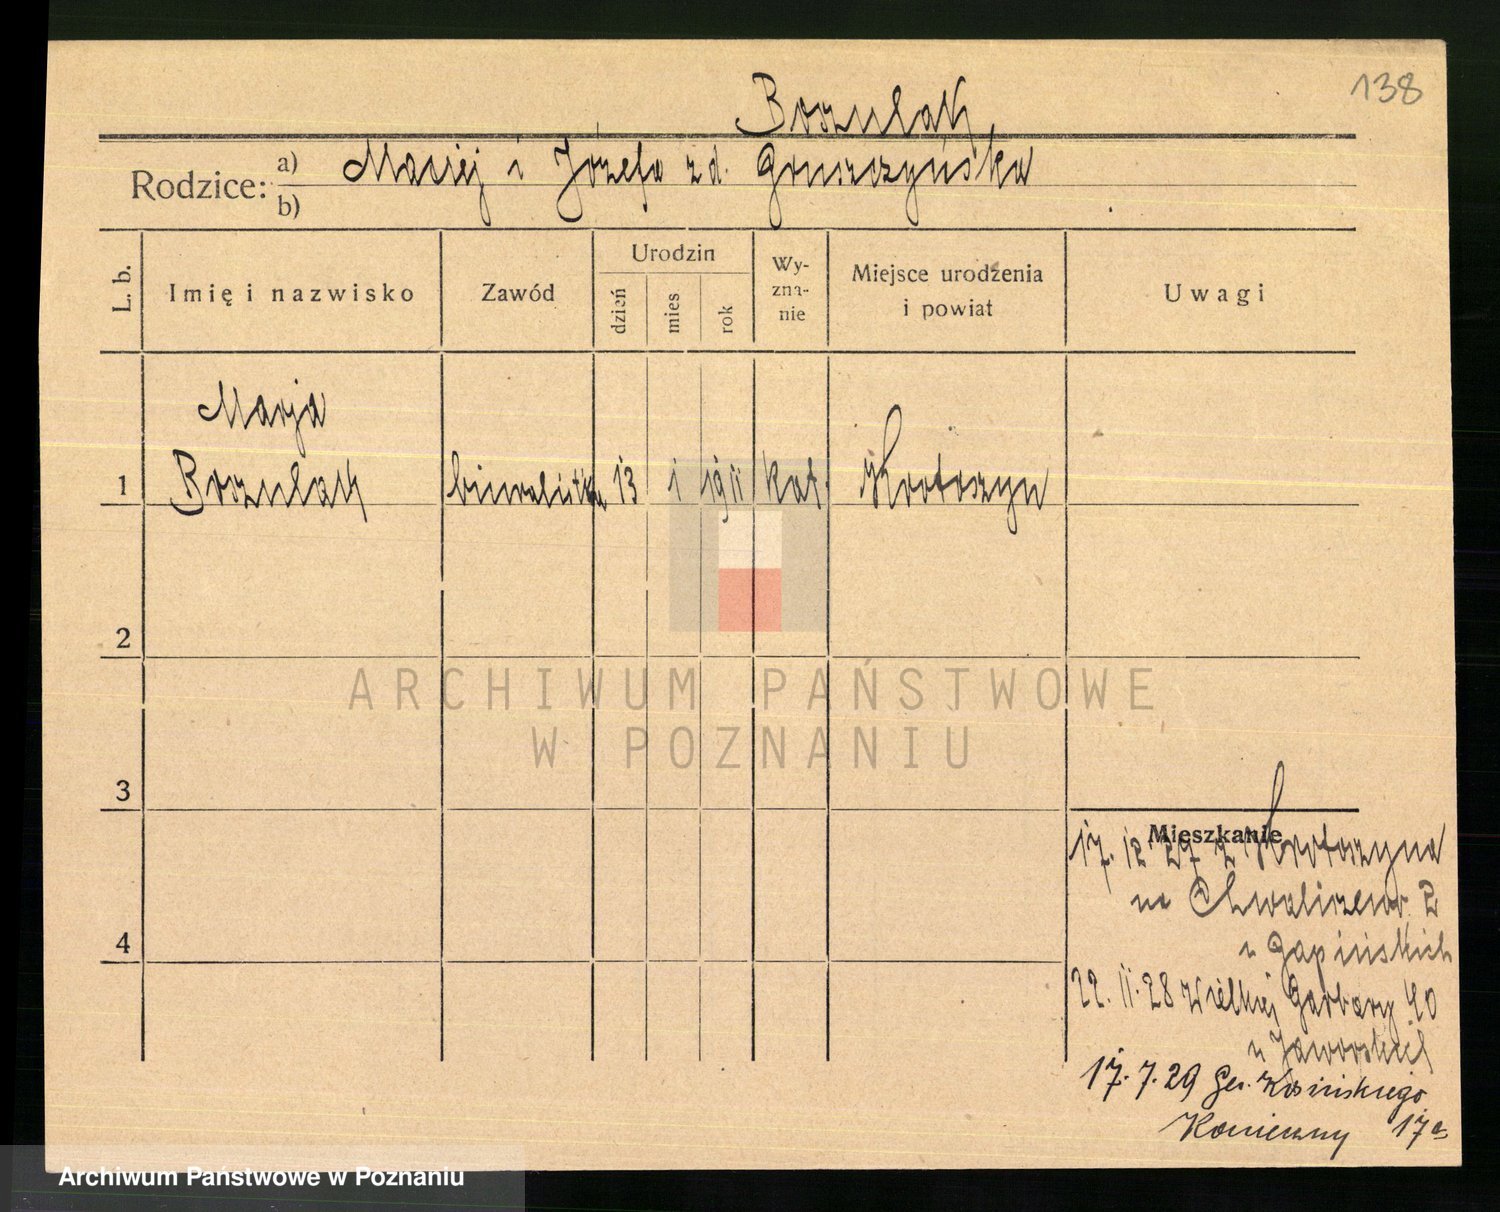 138
Boszulak
Rodzice: a) Maciej i Józefa z d. Gruszczyńska
b)
L. b.
Imię i nazwisko
Zawód
Urodzin
dzień
mies
rok
Wy-
zna-
nie
Miejsce urodzenia
i powiat
Uwagi
Marja
1 Boszulak biuralistka 13 i 1911 kat. Krotoszyn
2
3
4
Mieszkanie
17. 12 27 z Krotoszyna
na Chwaliszewo 2
u Gapińskich
22. ii. 28 Wielkiej Garbary 40
u Jaworskich
17. 7. 29 Gen. Kosińskiego
Konieczny 17a
ARCHIWUM PAŃSTWOWE
W POZNANIU
Archiwum Państwowe w Poznaniu